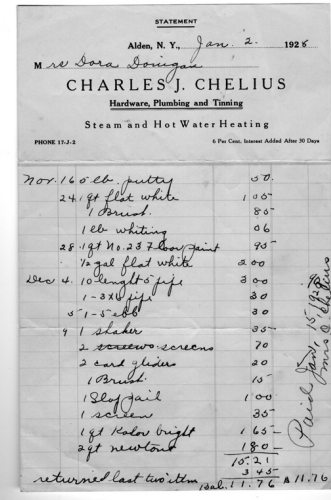 STATEMENT
Alden, N. Y., Jan. 2. 1928
Mrs Dora Donigan
CHARLES J. CHELIUS
Hardware, Plumbing and Tinning
Steam and Hot Water Heating
PHONE 17-J-2 6 Per Cent. Interest Added After 30 Days
Nov. 16 5 lb. putty 50
24 1 qt flat white 1 05
1 Brush. 85
1 lb whiting 06
28 1 qt No. 23 Floor paint 95
1/2 gal flat white 2 00
Dec 4. 10 lenght 5 pipe 3 00
1 - 3x6 pipe 30
5 1 - 5 ebb 30
9 1 shaker 35
2 screws screens 70
2 card gliders 20
1 Brush. 15
1 Slop pail 1 00
1 screen 35
1 qt Kolor bright 1 65
2 qt newtone 1 80
15.21
3.45
returned last two itm Bal. 11.76 $ 11.76
Paid Jan, 15, 1928
Mrs C. J. Chelius